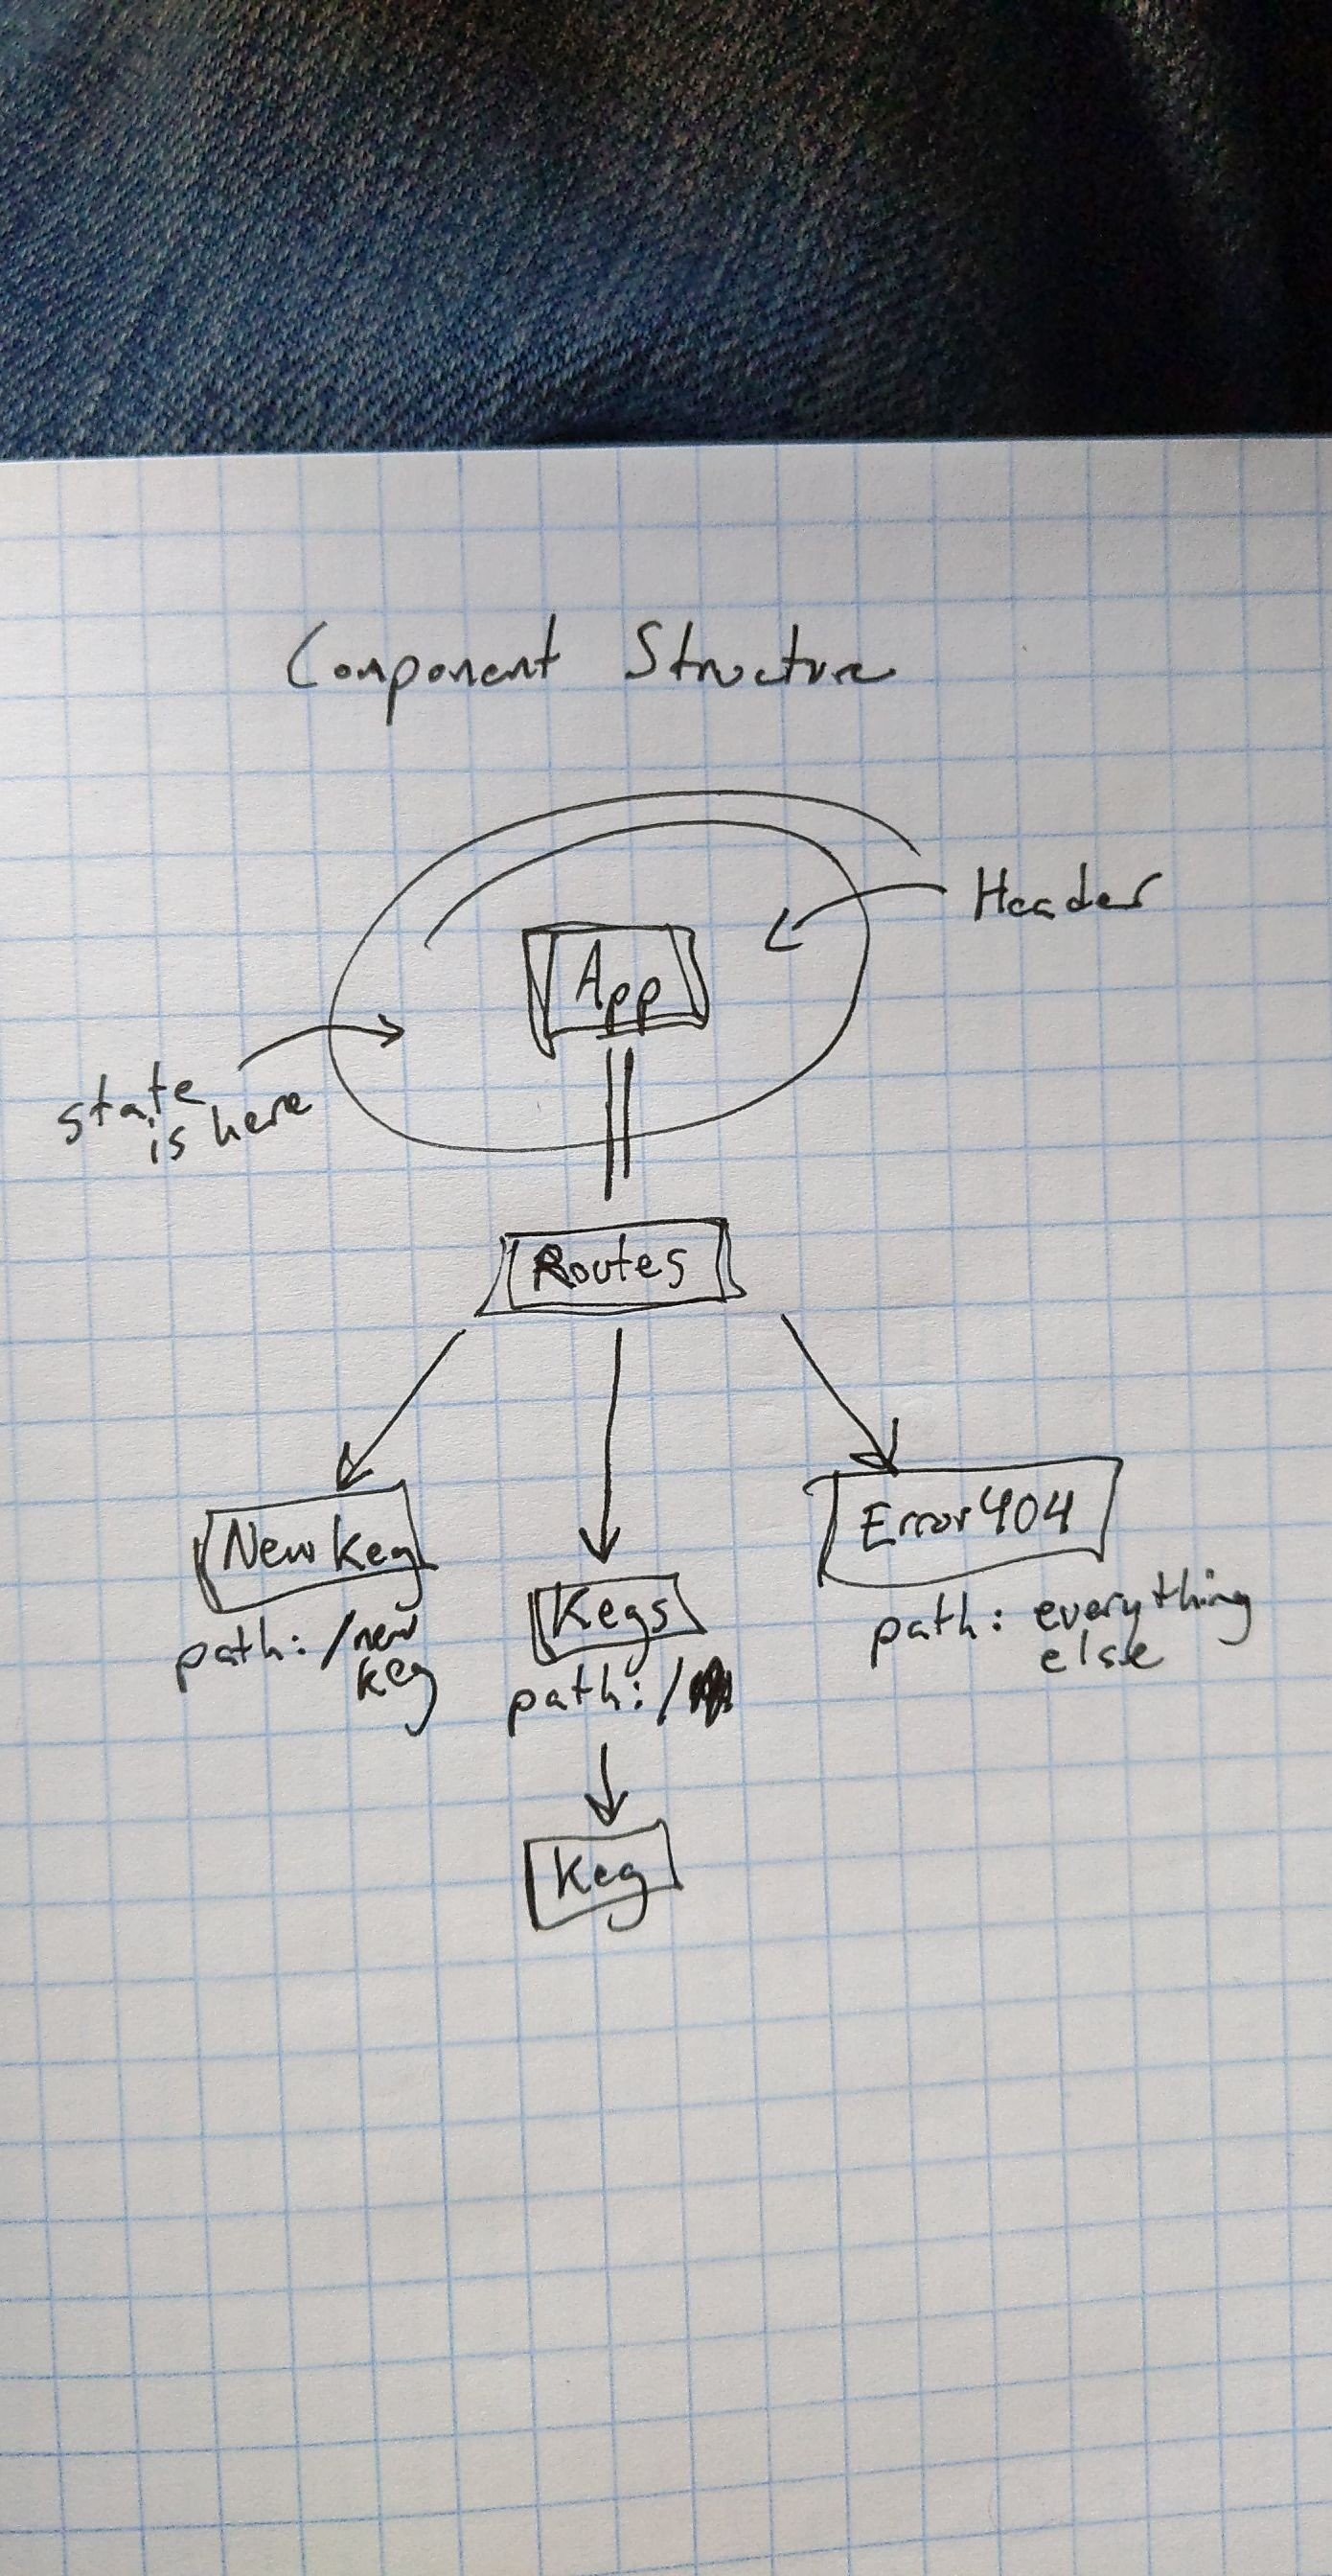 Component Structure
Header
App
state
is here
Routes
New Keg
path: /new
keg
Kegs
path: /
Error404
path: everything
else
Keg